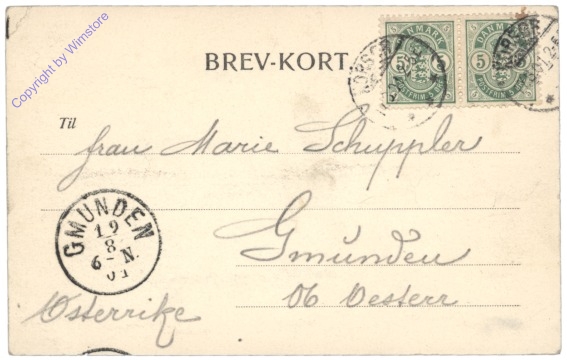 Copyright by Wimstore
BREV-KORT.
DANMARK
5 5
POSTFRIM
DANMARK
5 5
POSTFRIM
KORSØR
KORSØR
Til
frau Marie Schuppler
GMUNDEN
19
8
6-N.
01
Gmunden
Ob Oesterr
Österrike